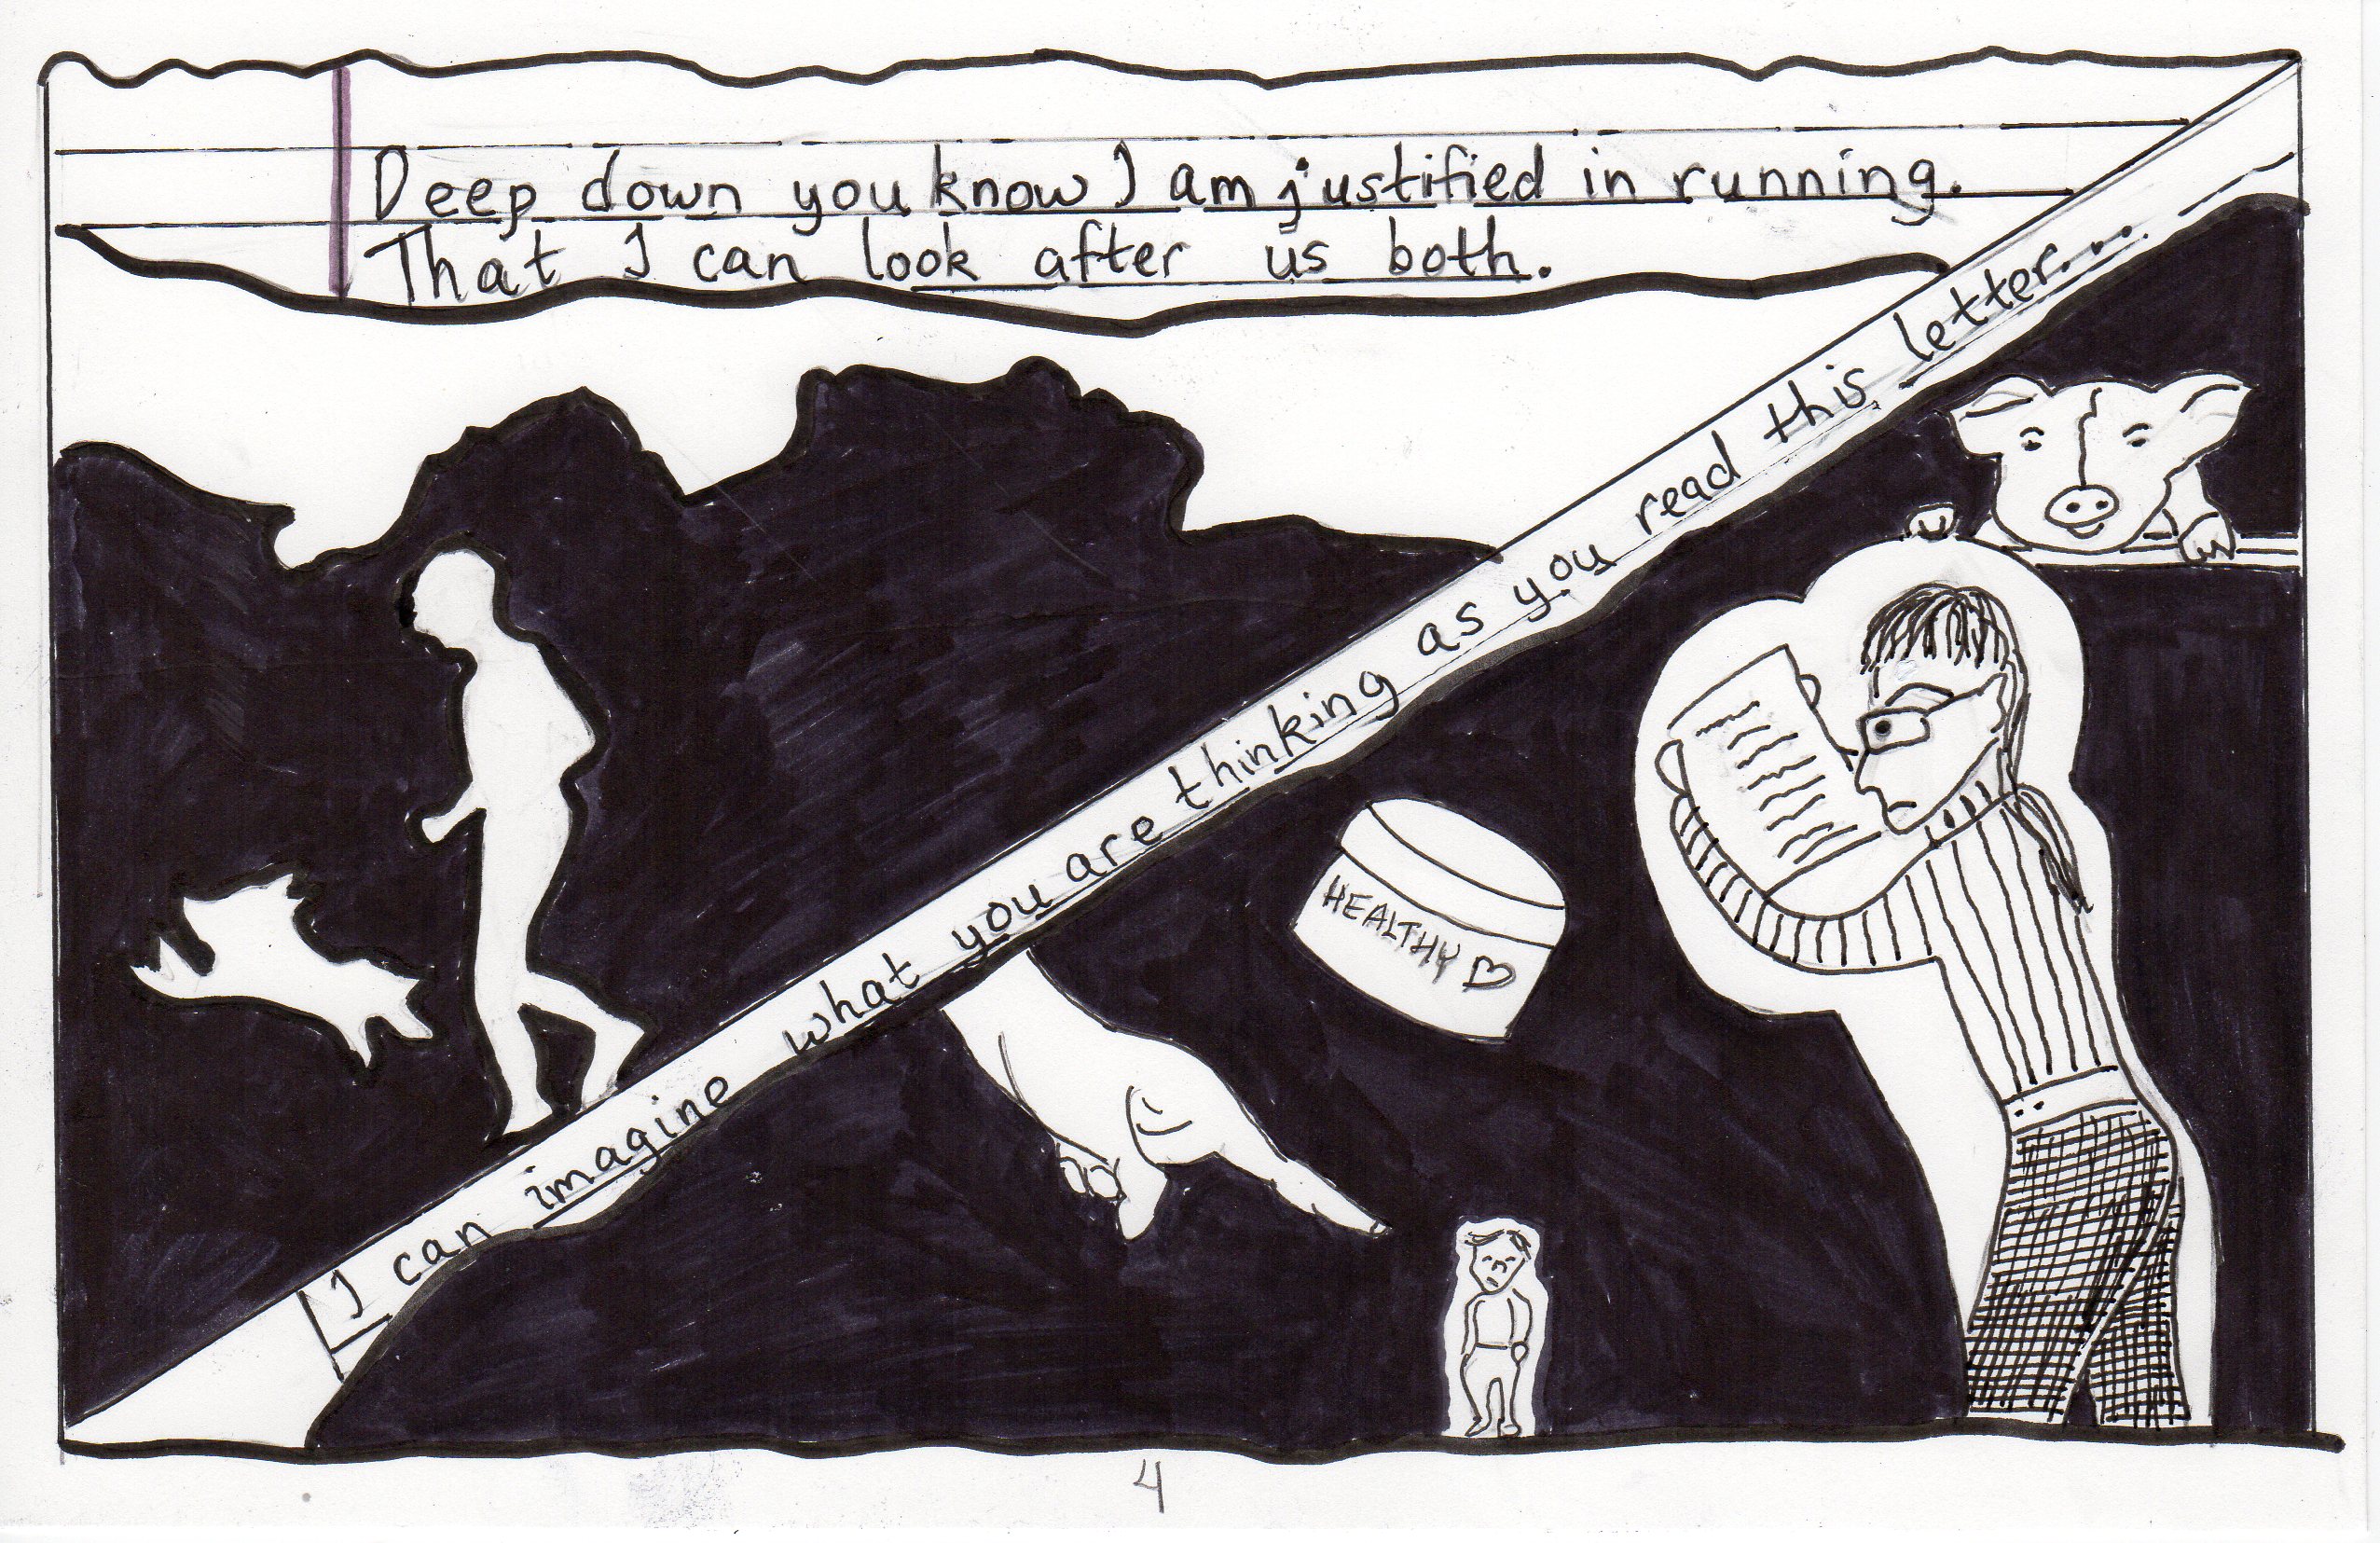 Deep down you know I am justified in running.
That I can look after us both.
I can imagine what you are thinking as you read this letter...
HEALTHY
4